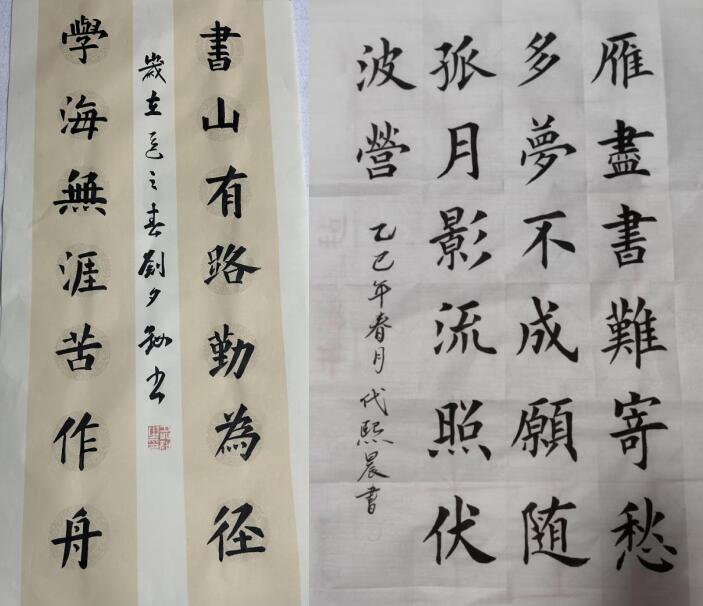 書山有路勤為徑
歲在乙巳之春劉夕
學海無涯苦作舟
雁盡書難寄愁
多夢不成願随
孤月影流照伏
波營
乙巳年春月代熙晨書